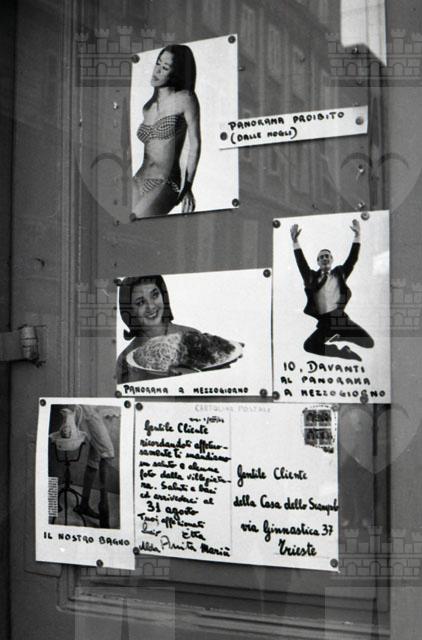 PANORAMA PROIBITO
(DALLE MOGLI)
PANORAMA A MEZZOGIORNO
IO, DAVANTI
AL PANORAMA
A MEZZOGIORNO
IL NOSTRO BAGNO
CARTOLINA POSTALE
Gentile Cliente
ricordandoti affettuo-
samente ti mandiamo
un saluto e alcune
foto della villeggiatu-
ra. Saluti e baci
ed arrivederci al
31 agosto
Tuoi affezionati
Etta
Alda Anita Maria
Gentile Cliente
della Casa dello Scampolo
via Ginnastica 37
Trieste